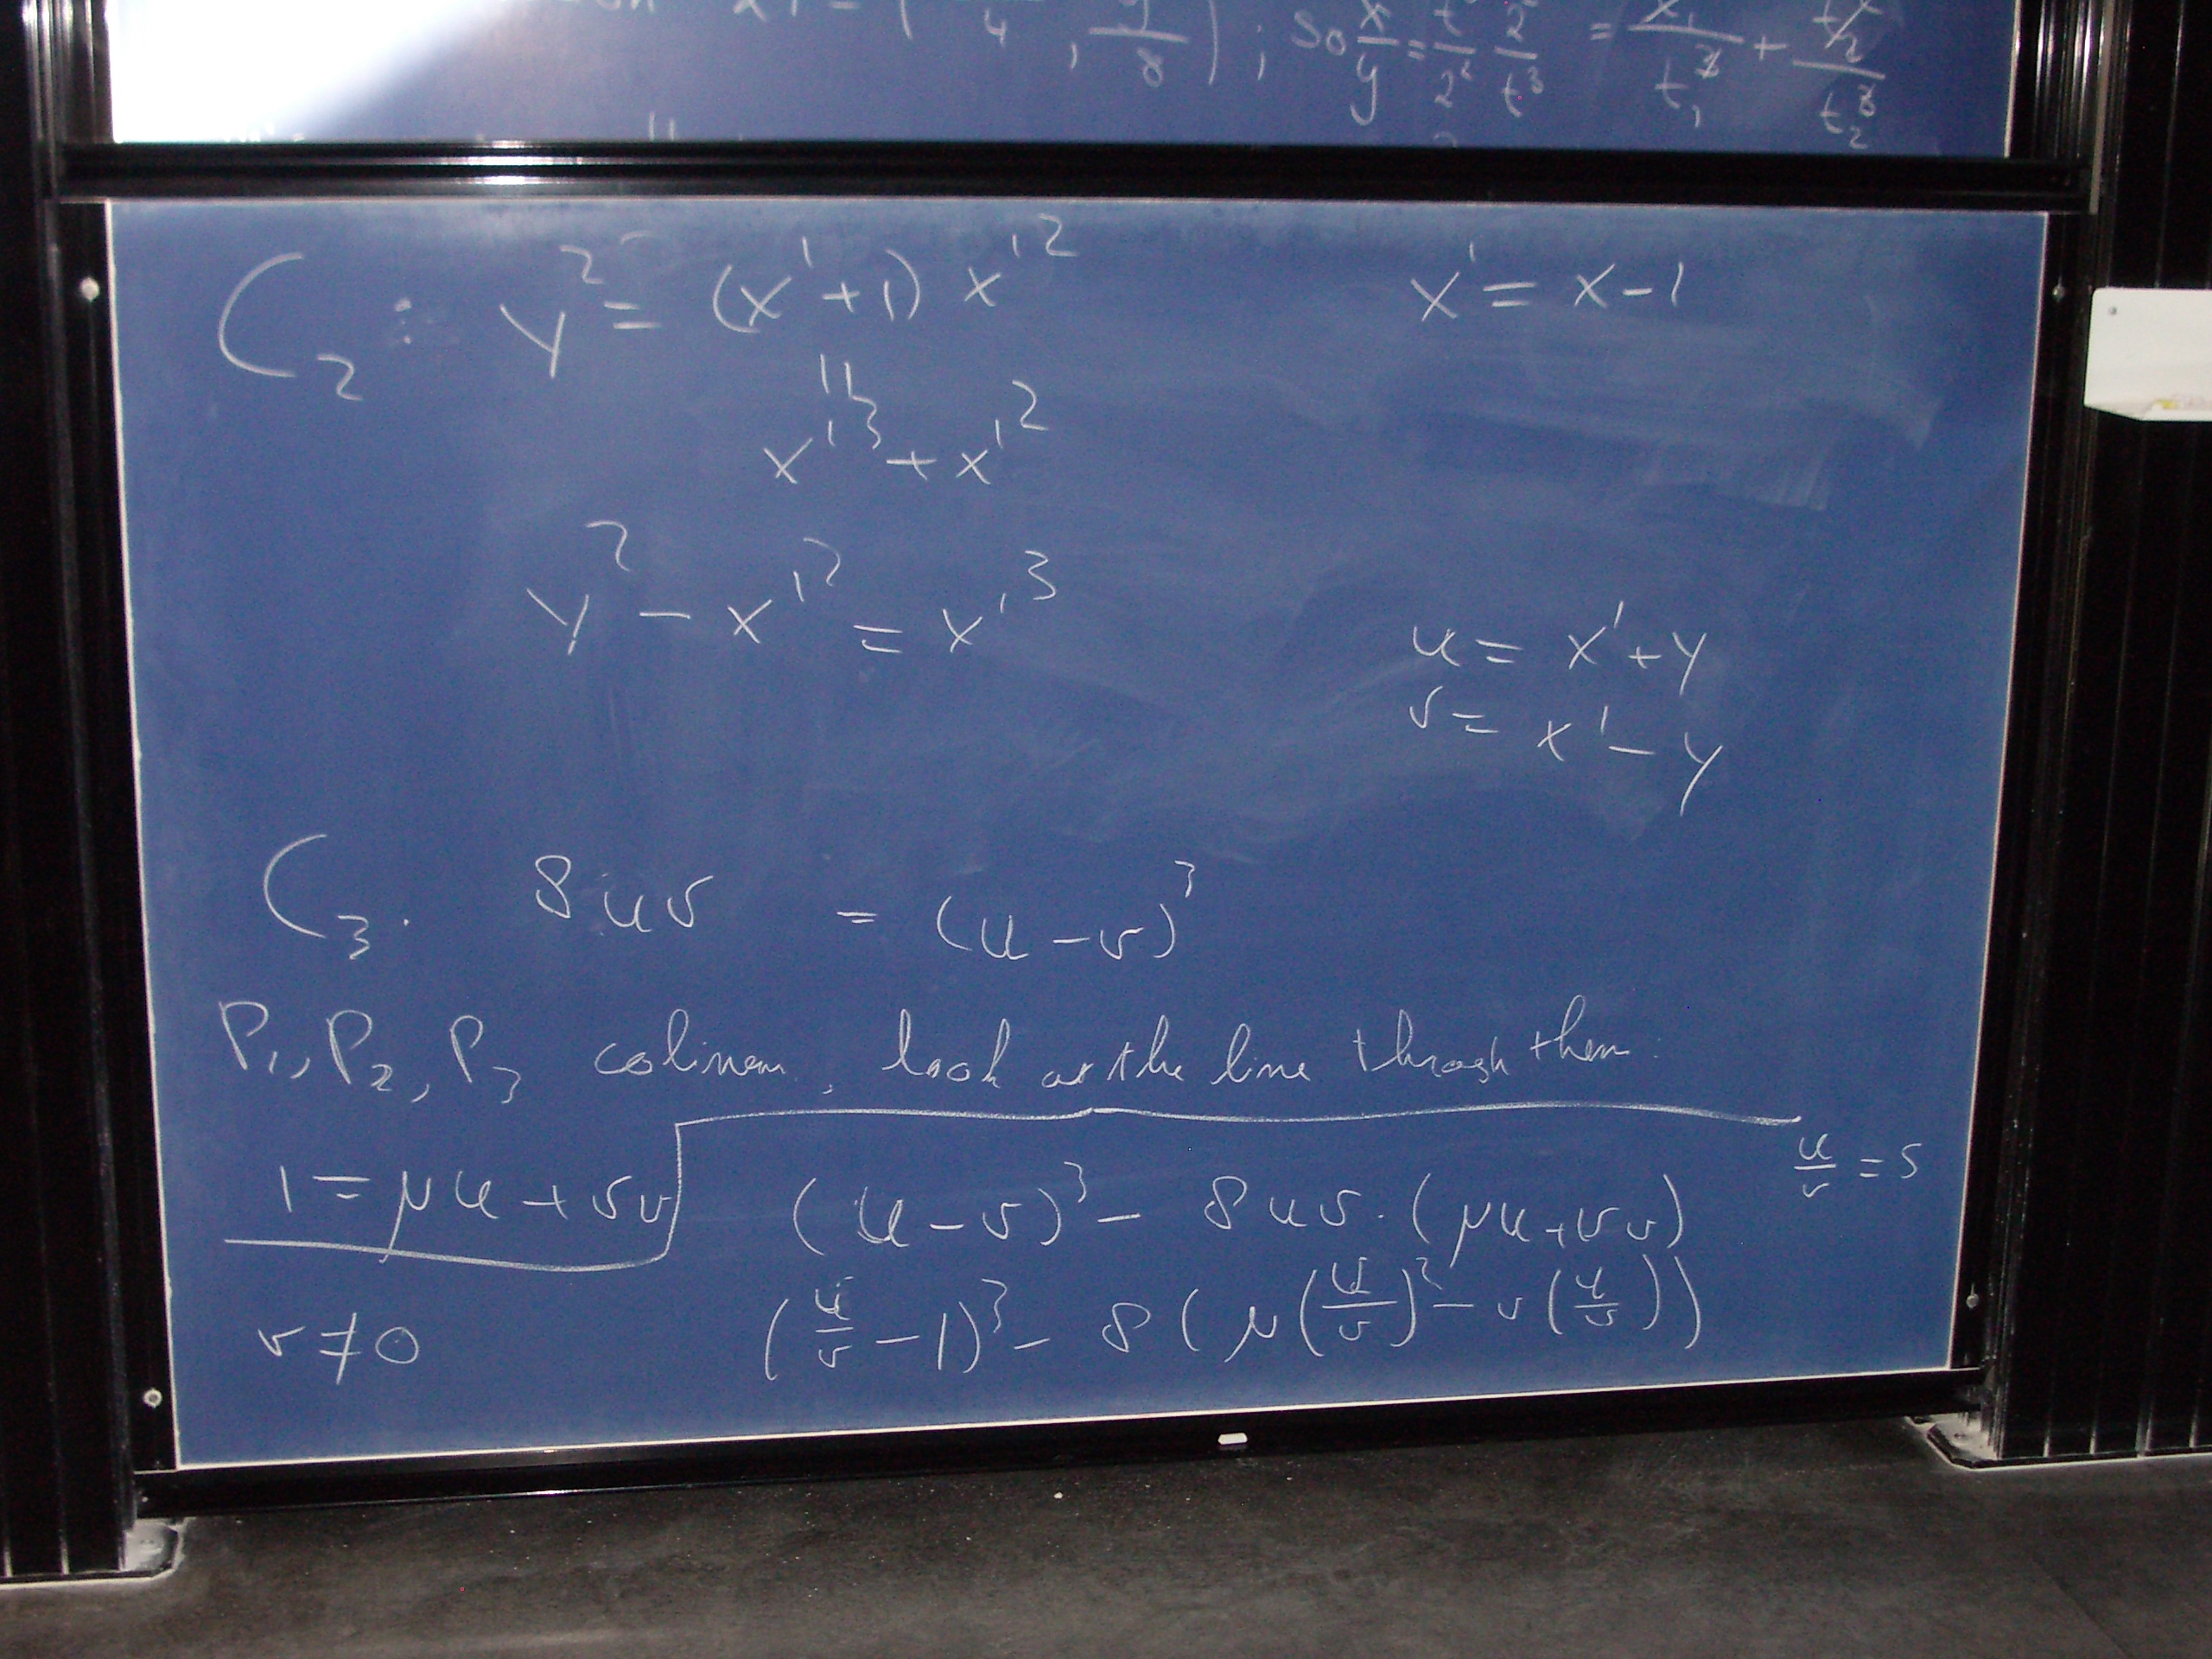 x/y = t²/2² 2³/t³ =
C₂ : y² = (x'+1) x'² x' = x-1
x'³ + x'²
y² - x'² = x'³
u = x'+y
v = x'-y
C₃. 8uv = (u-v)³
P₁, P₂, P₃ colinear, look at the line through them.
u/v = s
1 = μu + νv (u-v)³ - 8uv·(μu+νv)
v ≠ 0 (u/v - 1)³ - 8(μ(u/v)² - ν(u/v))